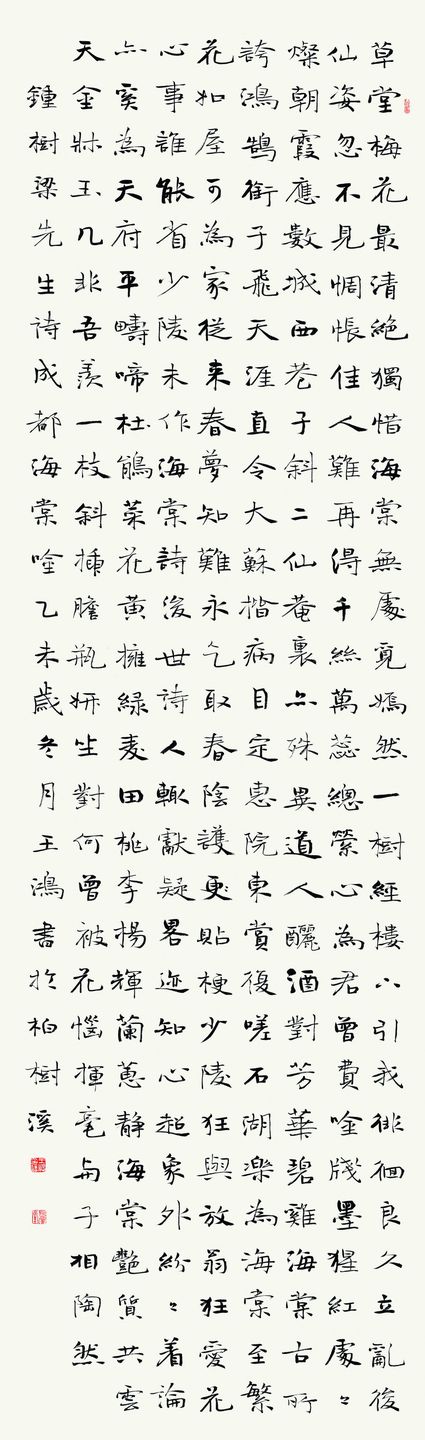 草堂梅花最清絕獨惜海棠無處覓嫣然一樹經樓八引我徘徊良久立亂後
仙姿忽不見惆悵佳人難再得千絲萬蕊總縈心為君曾費吟牋墨猩紅處〻
燦朝霞應數城西苍子斜二仙菴裏亦殊異道人釃酒對芳華碧雞海棠古所
誇鴻鵠銜子飛天涯直令大蘇揩病目定惠院東賞復嗟石湖樂為海棠至繁
花如屋可為家從来春夢知難永乞取春陰護更貼梗少陵狂與放翁狂愛花
心事誰能省少陵未作海棠詩後世詩人輒獻疑畧迹知心超象外紛〻着論
亦奚為天府平疇啼杜鵑菜花黃擁綠麦田桃李揚輝蘭蕙静海棠艷質共雲
天金牀玉几非吾羨一枝斜插膽瓶妍坐對何曾被花惱揮毫与子相陶然
鍾樹梁先生詩成都海棠吟乙未歲冬月王鴻書於柏樹溪